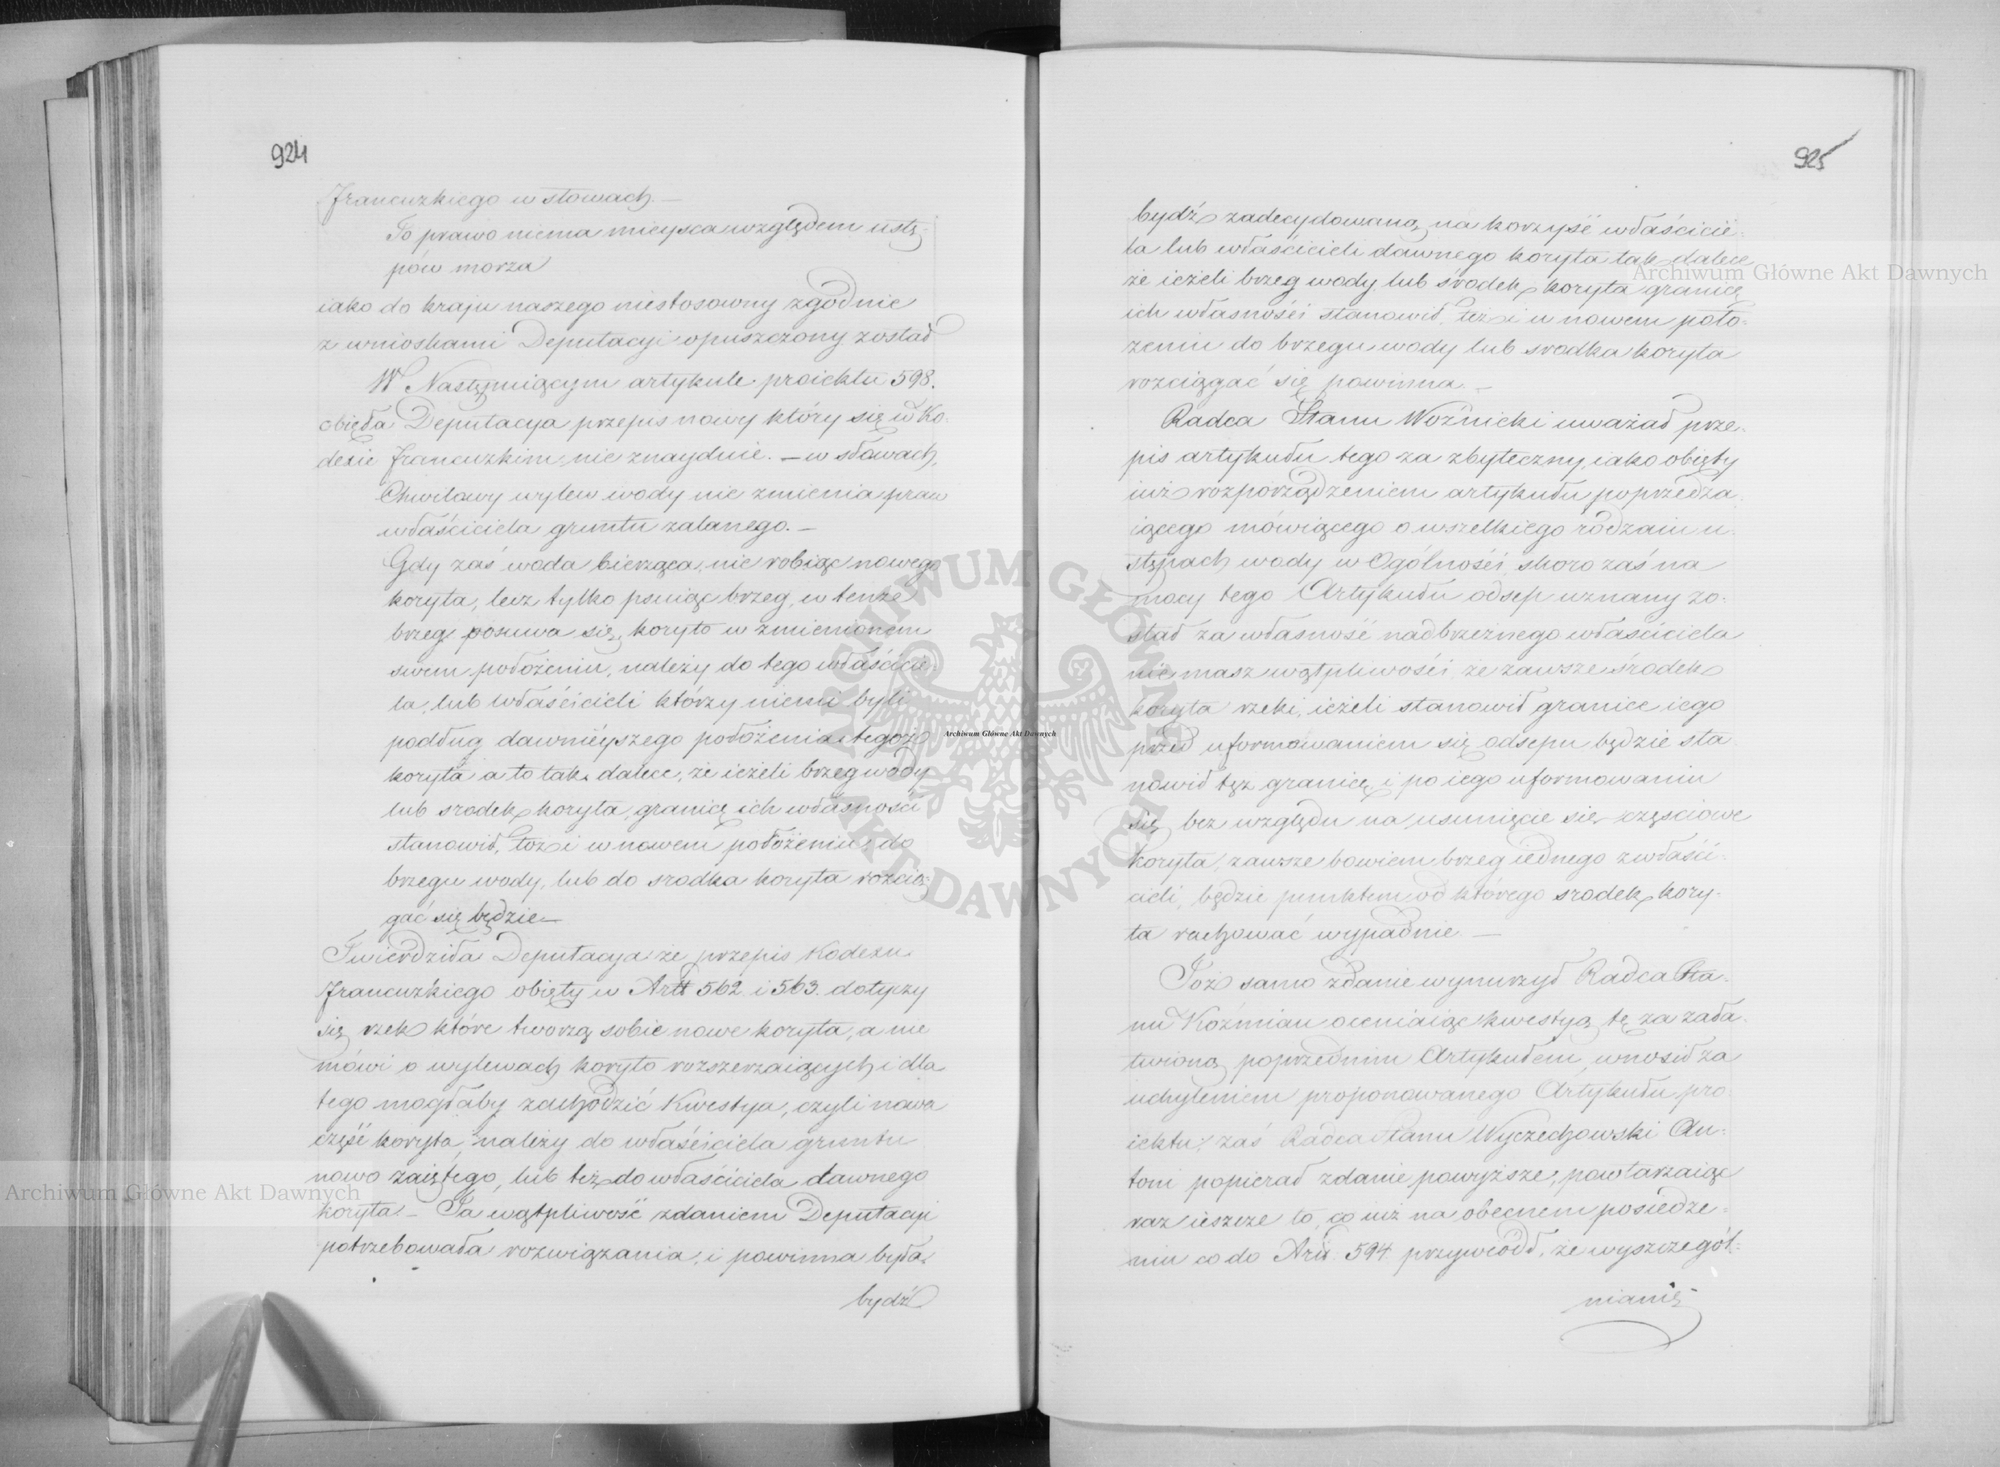 924
francuzkiego w słowach. —
To prawo niema mieysca względem ustę-
pów morza
iako do kraju naszego niestosowny zgodnie
z wnioskami Deputacyi opuszczony został
W Następuiącym artykule proiektu 598.
obięła Deputacya przepis nowy który się w Ko-
dexie francuzkim nie znayduie. — w słowach,
Chwilowy wylew wody nie zmienia praw
właściciela gruntu zalanego. —
Gdy zaś woda bierząca, nie robiąc nowego
koryta, lecz tylko psuiąc brzeg, w tenże
brzeg posuwa się, koryto w zmienionem
swem położeniu, należy do tego właścicie-
la, lub właścicieli którzy niemi byli
podług dawnieyszego położenia tegoż
koryta a to tak dalece, że ieżeli brzeg wody
lub srodek koryta, granicę ich własności
stanowił, toż i w nowem położeniu, do
brzegu wody, lub do srodka koryta rozcią-
gać się będzie —
Twierdziła Deputacya że przepis Kodexu
francuzkiego obięty w Artt 562. i 563. dotyczy
się rzek które tworzą sobie nowe koryta, a nie
mówi o wylewach koryto rozszerzaiących i dla
tego mogłaby zachodzić Kwestya, czyli nowa
część koryta, należy do właściciela gruntu
nowo zaiętego, lub też do właściciela dawnego
koryta — Ta wątpliwość zdaniem Deputacyi
potrzebowała rozwiązania, i powinna była
bydź
925
bydź zadecydowaną na korzyść właścicie-
la lub właścicieli dawnego koryta tak dalece
że ieżeli brzeg wody lub srodek koryta granicę
ich własności stanowił, też i w nowem poło-
zeniu do brzegu wody lub srodka koryta
rozciągać się powinna. —
Radca Stanu Woźnicki uważał prze-
pis artykułu tego za zbyteczny, iako obięty
iuż rozporządzeniem artykułu poprzedza-
iącego mówiącego o wszelkiego rodzaiu u-
stępach wody w Ogólności, skoro zaś na
mocy tego Artykułu odsep uznany zo-
stał za własność nadbrzeżnego właściciela
nie masz wątpliwości że zawsze środek
koryta rzeki, ieżeli stanowił granice iego
przed uformowaniem się odsepu będzie sta-
nowił też granicę, i po iego uformowaniu
się bez względu na usunięcie się częściowe
koryta, zawsze bowiem brzeg iednego z właści-
cieli, będzie punktem od którego srodek kory-
ta rachować wypadnie. —
Toż samo zdanie wynurzył Radca Sta-
nu Koźmian oceniaiąc kwestyą tę za zała-
twioną poprzednim Artykułem, wnosił za
uchyleniem proponowanego Artykułu pro-
iektu, zaś Radca Stanu Wyczechowski An-
toni popierał zdanie powyższe, powtarzaiąc
raz ieszcze to, co iuż na obecnem posiedze-
niu co do Artt. 594. przywiódł, że wyszczegól-
nianie